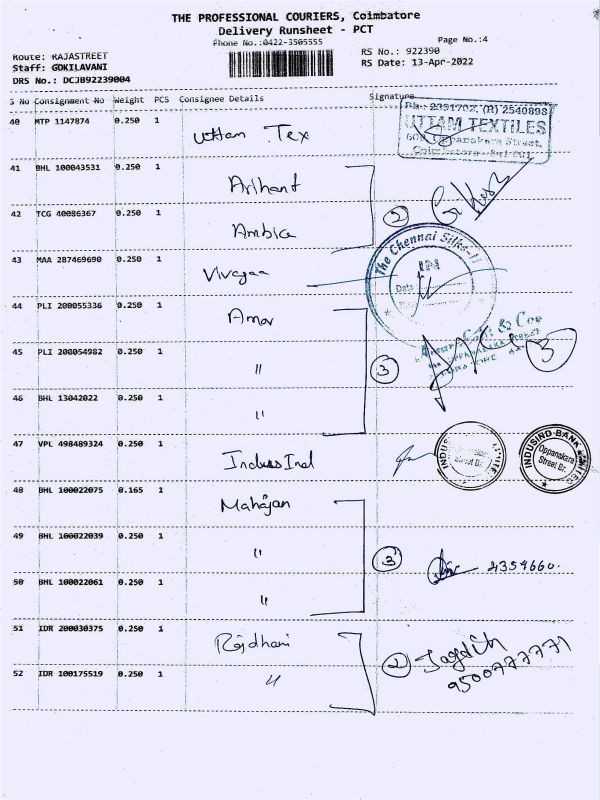 THE PROFESSIONAL COURIERS, Coimbatore
Delivery Runsheet - PCT
Phone No.:0422-3505555
Page No.:4
Route: RAJASTREET
RS No.: 922390
Staff: GOKILAVANI
RS Date: 13-Apr-2022
DRS No.: DCJB92239004
S No Consignment No Weight PCS Consignee Details Signature
40 MTP 1147874 0.250 1 Uttam Tex
Ph.: 2391702, (R) 2540898
UTTAM TEXTILES
Oppanakara Street,
Coimbatore - 641 001
41 BHL 100043531 0.250 1 Arihant
42 TCG 40086367 0.250 1 Ambica 2
43 MAA 287469690 0.250 1
The Chennai Silks
IN
Date
44 PLI 200055336 0.250 1 Amar
45 PLI 208054982 0.250 1 " 3 3
46 BHL 13042022 0.250 1 "
47 VPL 498489324 0.250 1 IndusInd
INDUSIND BANK LIMITED
Oppanakara
Street Br.
48 BHL 100022075 0.165 1 Mahajan
49 BHL 100022039 0.250 1 " 3 4354660.
50 BHL 100022061 0.250 1 "
51 IDR 200030375 0.250 1 Rajdhani 2 Jagdish
9500777771
52 IDR 100175519 0.250 1 "